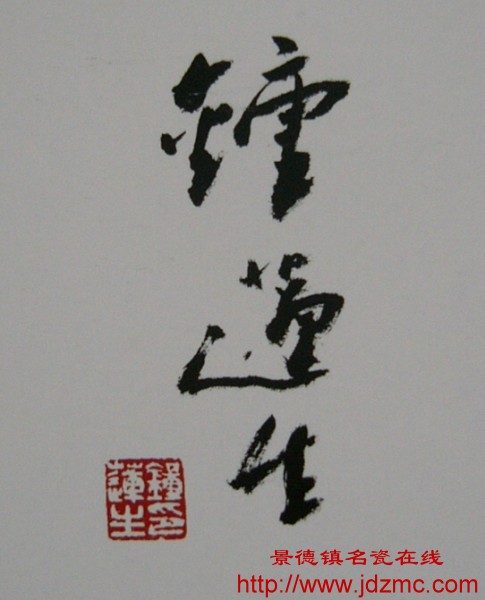 鐘蓮生
鐘蓮生印
景德镇名瓷在线
http://www.jdzmc.com